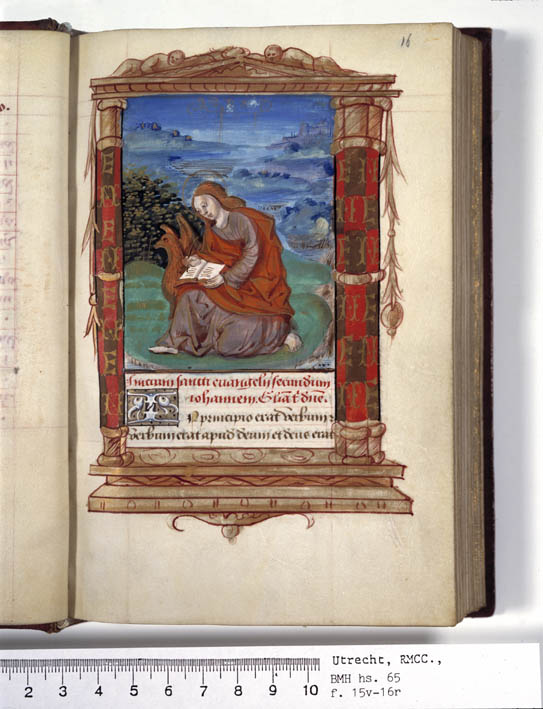 16
Inicium sancti evangelii secundum
Iohannem. Gloria tibi domine.
IN principio erat verbum:
verbum erat apud deum et deus erat
2 3 4 5 6 7 8 9 10
Utrecht, RMCC.,
BMH hs. 65
f. 15v-16r